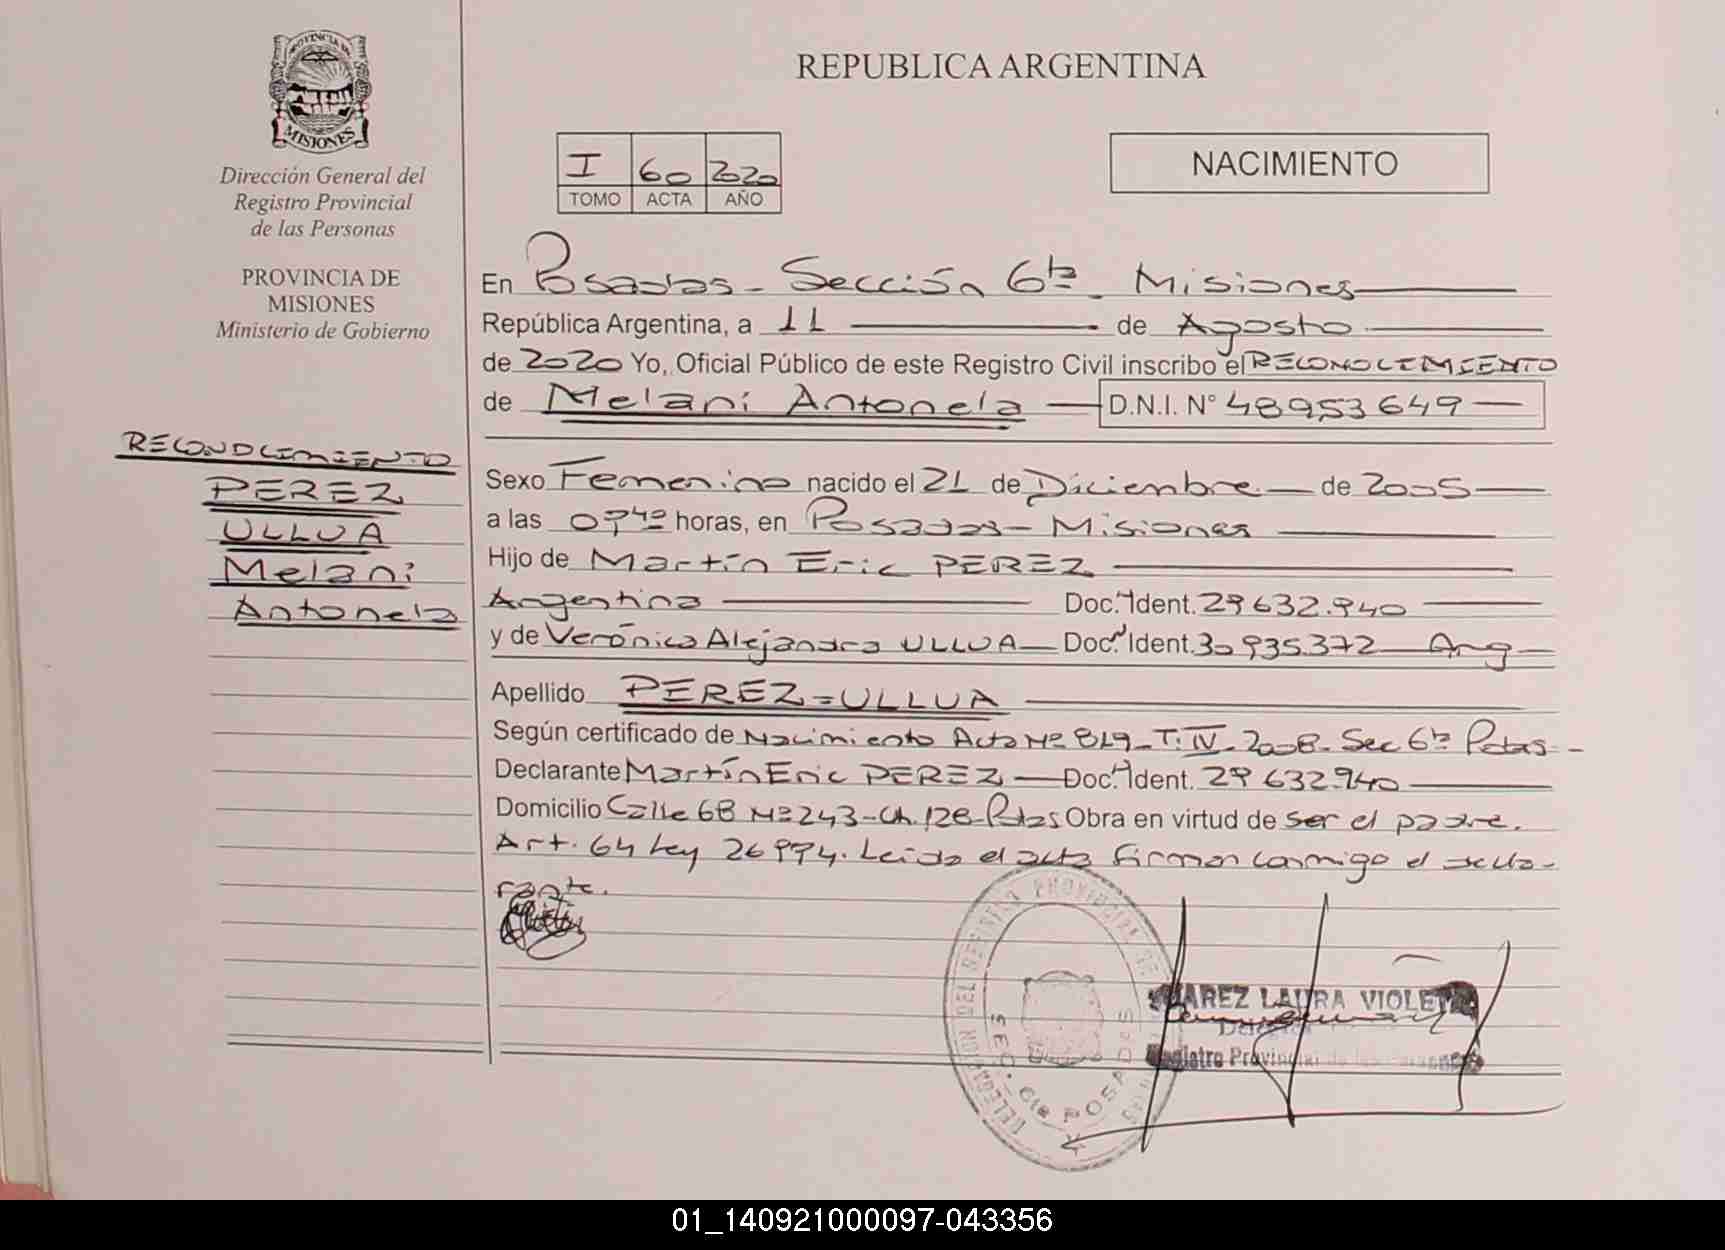 PROVINCIA DE
MISIONES
Dirección General del
Registro Provincial
de las Personas
PROVINCIA DE
MISIONES
Ministerio de Gobierno
RECONOCIMIENTO
PEREZ
ULLUA
Melani
Antonela
REPUBLICA ARGENTINA
I 60 2020
TOMO ACTA AÑO
NACIMIENTO
En Posadas - Sección 6ta - Misiones
República Argentina, a 11 de Agosto
de 2020 Yo, Oficial Público de este Registro Civil inscribo el RECONOCIMIENTO
de Melani Antonela D.N.I. N° 48953649
Sexo Femenino nacido el 21 de Diciembre de 2005
a las 0740 horas, en Posadas - Misiones
Hijo de Martín Eric PEREZ
Argentina Doc. Ident. 29632.940
y de Verónica Alejandra ULLUA Doc. Ident. 30935.372 Arg
Apellido PEREZ = ULLUA
Según certificado de Nacimiento Acta Nº 819 - T: IV - 2008 - Sec 6ta Pdas -
Declarante Martín Eric PEREZ Doc. Ident. 29632.940
Domicilio Calle 68 Nº 243 - Ch. 128 - Pdas Obra en virtud de ser el padre.
Art. 64 Ley 26994. Leida el acta firman conmigo el decla-
rante.
DELEGACION DEL REGISTRO PROVINCIAL DE
SEC. 6ta POSADAS
AREZ LAURA VIOLETA
Registro Provincial de las Personas
01_140921000097-043356